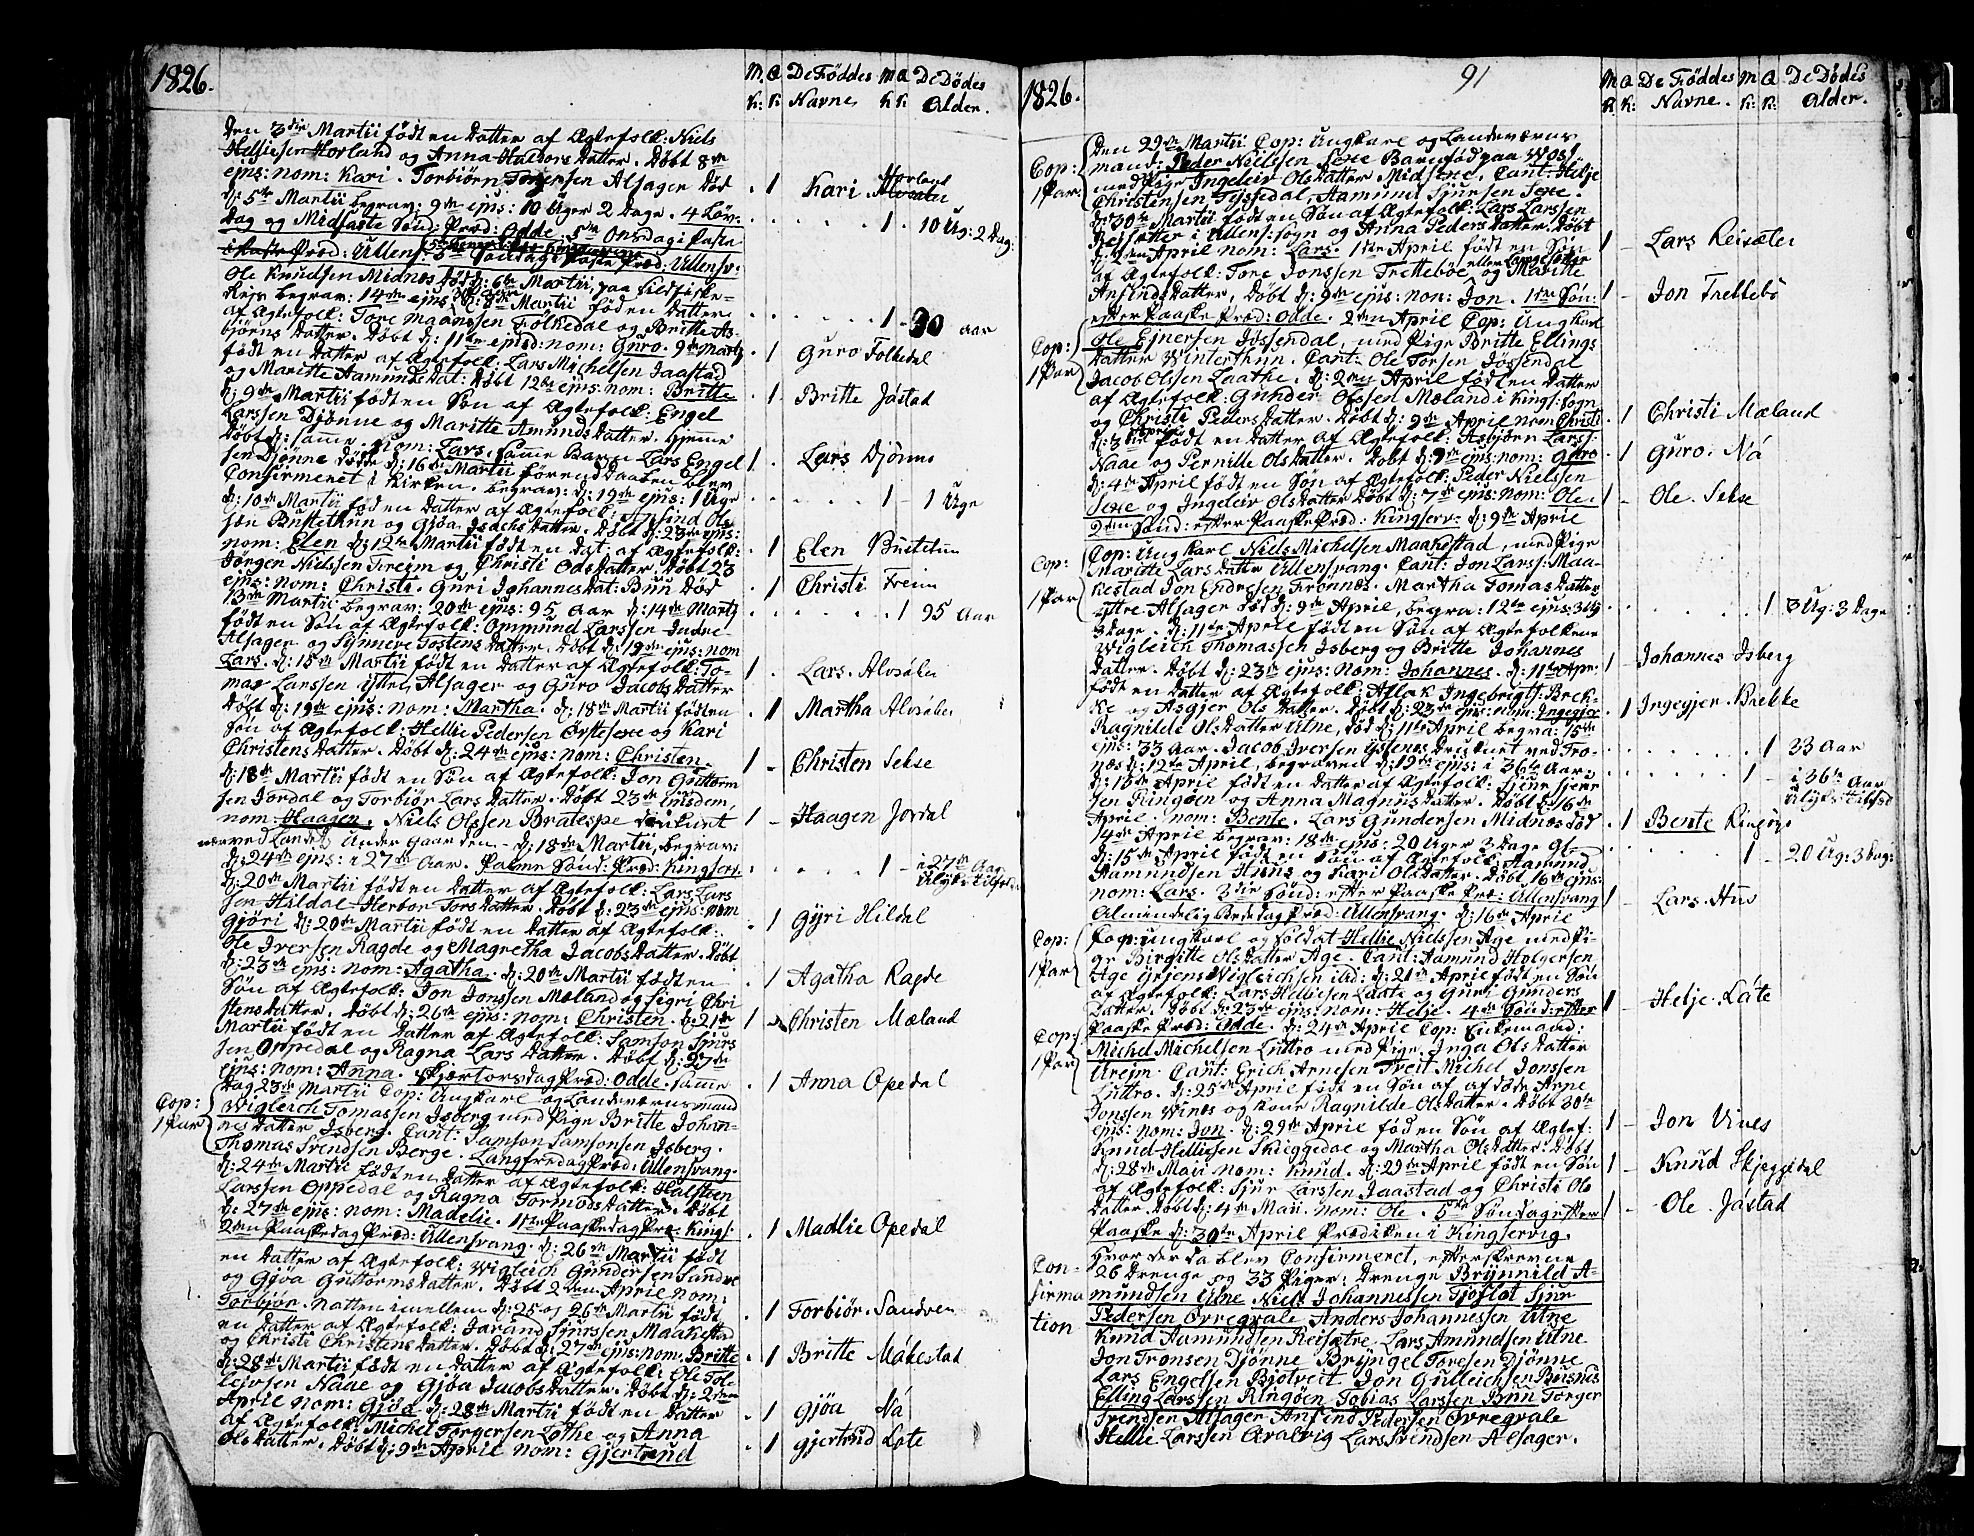 1826.
M. Q De Føddes M Q De Dødes
K: K. Navne K K. Alder.
Den 3die Martii født en Datter af Ægtefolk: Niels
Helliesen Horland og Anna Haldors Datter. Døbt 8de
ejus: nom: Kari. Torbiørn Alsager Død
d: 5te Martii begrav: 9de ejus: 10 Uger 2 Dage. 4 Løv-
dag og Midfaste Sønd: Præd: Odde. 5te Onsdag i Faste
Præd: Ullens: 5te Søndag i Faste Præd: Ullensv:
Ole Knudsen Midnes Død d: 6te Martii, paa Sildfiske-
begrav: 14de ejus d: 8de Martii føden Datter
af Ægtefolk: Tore Maansen Folkedal og Britte As-
bjørns Datter. Døbt d: 11te ejusd: nom: Guro. 9de Martii
født en Datter af Ægtefolk: Lars Michelsen Jaastad
og Maritte Aamunds Dat: Døbt 12te ejus: nom: Britte
d: 9de Martii født en Søn af Ægtefolk: Engel
Larssen Djønne og Maritte Amunds Datter. Hjemme
Døbt d: samme. nom: Lars. Samme Barn Lars Engel
sen Djønne Døde d: 16de Martii førend Daaben blev
Confirmeret i Kirken. begrav: d: 19de ejus: 1 Uge
d: 10de Martii føden Datter af Ægtefolk: Anfind Ols
søn Bustethun og Gjøa Isachs Datter. Døbt d: 23de ejus:
nom: Elen d: 12te Martii født en Dat: af Ægtefolk:
Jørgen Nielssen Freim og Christi Ods Datter. Døbt 23
ejus: nom: Christi. Guri Johannes Dat: Buu Død
13de Martii begrav: 20de ejus: 95 Aar d: 14de Martij
født en Søn af Ægtefolk: Ommund Larssen Indre-
Alsager og Synneve Tostens Datter. Døbt d: 19de ejus: nom
Lars. d: 15de Martii født en Datter af Ægtefolk: To-
mas Larssen Ytter Alsager og Guro Jacobs Datter
Døbt d: 19de ejus: nom: Martha. d: 18de Martii føden
Søn af Ægtefolk: Hellie Pedersen og Kari
Christens Datter. Døbt d: 24de ejus: nom: Christen.
d: 18de Martii født en Søn af Ægtefolk: Jon Guttorm
sen Jordal og Torbiør Lars Datter. Døbt 23de Ejusdem,
nom: Haagen. Niels Olssen Bratespe Druknet
nær ved Landet under Gaarden. d: 18de Martii, begrav:
d: 24de ejus: i 27de Aar. Palme Sønd: Præd: Kingserv.
d: 20de Martii født en Datter af Ægtefolk: Lars Lars
sen Hildal Herbor Tors Datter. Døbt d: 23de ejus: nom
Gjøri d: 20de Martii født en Datter af Ægtefolk:
Ole Iversen Ragde og Magretha Jacobs Datter. Døbt
d: 23de ejus: nom: Agatha. d: 20de Martii født en
Søn af Ægtefolk: Jon Jonssen Mæland og Sigri Chri
stens Datter. Døbt d: 26de ejus: nom: Christen. d: 21de
Martii født en Datter af Ægtefolk: Samson Sjurs
sen Oppedal og Ragna Lars Datter. Døbt d: 27de
ejus: nom: Anna. Skjærtorsdag Præd: Odde. samme
Dag 23de Martii Cop: Ungkarl og Landeværnsmand
Cop: 1 Par
Wigleich Tomassen Isberg med Pige Britte Johan-
nes Datter Isberg. Caut: Samson Samsonsen Isberg.
Thomas Svendsen Berge. Langfredag Præd: Ullensvang.
d: 24de Martii født en Datter af Ægtefolk: Halsteen
Larssen Oppedal og Ragna Tormods Datter. Døbt
d: 27de ejus: nom: Madelie. 1ste Paaskedag Præ: Kings:
2den Paaskedag Præd: Ullensvang. d: 26de Martii født
en Datter af Ægtefolk: Wigleich Gundersen Sandve
og Gjøa Guttorms Datter. Døbt 2den April nom:
Torbjør. Natten imellem d: 25 og 26de Martii født
en Datter af Ægtefolk: Jarand Sjurssen Maakestad
og Christi Christens Datter. Døbt d: 27de ejus: nom. Britte
d: 28de Martii født en Datter af Ægtefolk: Ole Tole
lejvsen Naae og Gjøa Jacobs Datter. Døbt d: 2den
April nom: Gjøa d: 28de Martii født en Datter
af Ægtefolk: Michel Torgersen Lothe og Anna
Ols Datter. Døbt d: 9de April nom: Gjertrund
1 Kari Horland
1 10 Ug: 2 Dag:
1 30 Aar
1 Guro Folkedal
1 Britte Jåstad
1 Lars Djønne
1 1 Uge
1 Elen Bustetun
1 Christi Freim
1 95 Aar
1 Lars. Alvsåker
1 Martha Alvsåker
1 Christen Sekse
1 Haagen Jordal
1 i 27de Aar Ulyk: Tilfæ
1 Gyri Hildal
1 Agatha Ragde
1 Christen Mæland
1 Anna Opedal
1 Madlie Opedal
1 Torbiør Sandven
1 Britte Måkestad
1 Gjøa Nå
1 Gjertrud Lote
1826.
91
M Q De Føddes M Q De Dødes
K: K: Navne. K: K. Alder.
Den 29de Martii Cop: Ungkarl og Landeværns
Cop: 1 Par
mand: Peder Nielssen Sexe Barnfød paa Woss
med Pige Ingeleiv Ols Datter Midsexe, Caut: Helje
Christensen Tyssedal, Aamund Sjursen Sexe.
d: 30te Martii født en Søn af Ægtefolk: Lars Larssen
Reisætter i Ullens: sogn og Anna Peders Datter. Døbt
d: 2den April nom: Lars. 1ste April født en Søn
af Ægtefolk: Tore Jonssen Trettebøe og Maritte
Anfinds Datter, Døbt d: 9de ejus: nom: Jon. 1ste Søn:
efter Paaske Præd: Odde. 2den April Cop: Ungkarl
Cop: 1 Par
Ole Ejnersen Jøssendal, med Pige Britte Ellings
Datter Winterthun. Caut: Ole Torsen Jøssendal
Jacob Olssen Laathe. d: 2den April født en Datter
af Ægtefolk: Gunder Olssen Mæland i Kings: sogn
og Christi Peders Datter. Døbt d: 9de April nom Christi
d: 3die April født en Datter af Ægtefolk: Asbjørn Larss:
Naae og Pernille Ols Datter. Døbt d: 9de ejus: nom: Guro
d: 4de April født en Søn af Ægtefolk: Peder Nielssen
Sexe og Ingeleiv Ols Datter Døbt d: 7de ejus: nom: Ole.
2den Sønd: efter Paaske Præd: Kingserv: d: 9de April
Cop: 1 Par
Cop: Ungkarl Niels Michelsen Maakestad, med Pige
Maritte Lars Datter Ullensvang. Caut: Jon Larss: Maa-
kestad Jon Endresen Frønnes. Martha Tomas Datter
Yttre Alsager Død d: 9de April, begra: 12te ejus: 3 Ug
3 Dage. d: 11te April født en Søn af Ægtefolkene
Wigleich Thomassen Isberg og Britte Johannes
Datter. Døbt d: 23de ejus: Nom: Johannes. d: 11te Apr:
født en Datter af Ægtefolk: Aslak Ingebrigts: Brek-
ke og Asgjer Ols Datter. Døbt d: 23de ejus: nom: Ingegjer
Ragnilde Ols Datter Utne, Død d: 11te April begra: 15de
ejus: 33 Aar. Jacob Iversen Ystenes Druknet ved Tro-
næs d: 12te April, begraven d: 19de ejus: i 36te Aar.
d: 13de April født en Datter af Ægtefolk: Sjur Sjur
sen Ringøen og Anna Magnus Datter. Døbt d: 16de
April. nom: Bente. Lars Gundersen Midnæs Død
14de April begrav: 18de ejus: 20 Uger 3 Dage gl.
d: 15de April født en Søn af Ægtefolk: Aamund
Aamundsen Huus og Kari Ols Datter. Døbt 16de ejus:
nom: Lars. 3die Sønd: efter Paaske Præ: Ullensvang
Almindelig Bededag Præd: Ullensvang. d: 16de April
Cop: 1 Par
Cop: Ungkarl og Soldat Hellie Nielssen Age med Pi-
ge Birgitte Ols Datter Age. Caut: Aamund Holgersen
Age Wigleichsen ibd: d: 21de April født en Søn
af Ægtefolk: Lars Helliesen Laate og Guri Gunders
Datter. Døbt d: 23de ejus: nom: Helje. 4de Sønd: efter
Paaske Præd: Odde. d: 24de April Cop: Enkemand:
Cop: 1 Par
Michel Michelsen Luttro med Pige. Inga Ols Datter
Urejm. Caut: Erich Arnesen Treit Michel Jonssen
Luttro. d: 25de April født en Søn af afdøde Arne
Jonssen Winæs og Kone Ragnilde Ols Datter. Døbt 30te
ejus: nom: Jon. d: 29de April føden Søn af Ægtef:
Knud Helliesen Skieggedal og Martha Ols Datter. Døbt
d: 28de Maii nom: Knud. d: 29de April født en Søn
af Ægtefolk: Sjur Larssen Jaastad og Christi Ols
Datter Døbt d: 4de Maii. nom: Ole. 5te Søndag efter
Paaske d: 30te April Prædiken i Kingservig.
Con-
firma
tion
Hvor der da blev Confirmeret, efterskrevne
26 Drenge og 33 Piger: Drenge Brynnild A-
mundsen Utne Niels Johannessen Tjoflot Sjur
Pedersen Ovregvale Anders Johannessen Utne
Knud Aamundsen Reisætre Lars Amundsen Utne
Jon Tronsen Djønne Bryngel Toresen Djønne
Lars Engelsen Bjotveit Jon Gulleichsen Busnes
Elling Larssen Ringøen Tobias Larssen Buu Torger
Svendsen Alsager Anfind Pedersen Ovregvale
Hellie Larssen Qvalvig Lars Svendsen Alsager.
1 Lars Reisæter
1 Jon Trettebø
1 Christi Mæland
1 Guro. Nå
1 Ole. Sekse
1 3 Ug: 3 Dage
1 Johannes Isberg
1 Ingegjer Brekke
1 33 Aar
1 i 36te Aar Ulyk: Tilfæld
1 Bente Ringøy
1 20 Ug: 3 Dag:
1 Lars. Hus
1 Helje. Låte
1 Jon Vines
1 Knud Skjeggedal
1 Ole Jåstad